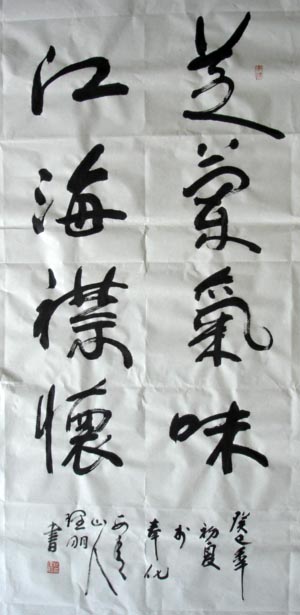 芝蘭氣味
江海襟懷
癸巳年
初夏
於
奉化
山人
理明
書